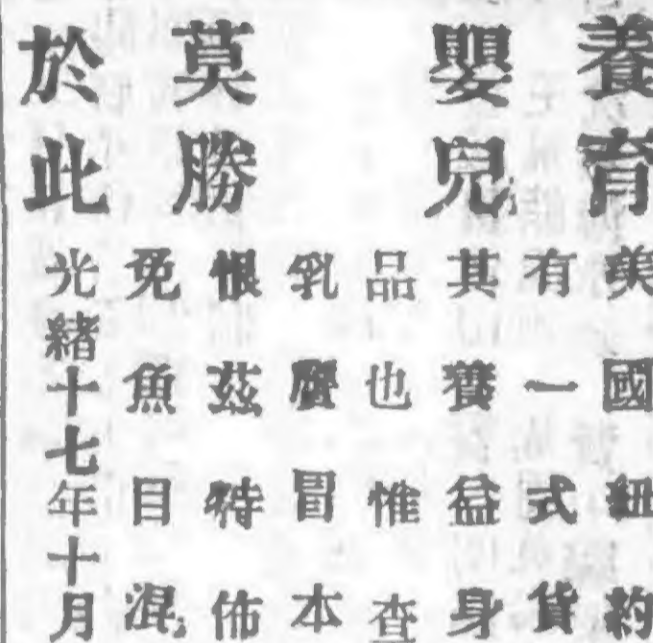 養育
嬰兒
莫勝
於此
美國紐約
有一式貨
其養益身
品也惟查
乳廣冒本
恨茲特佈
免魚目混
光緒十七年十月